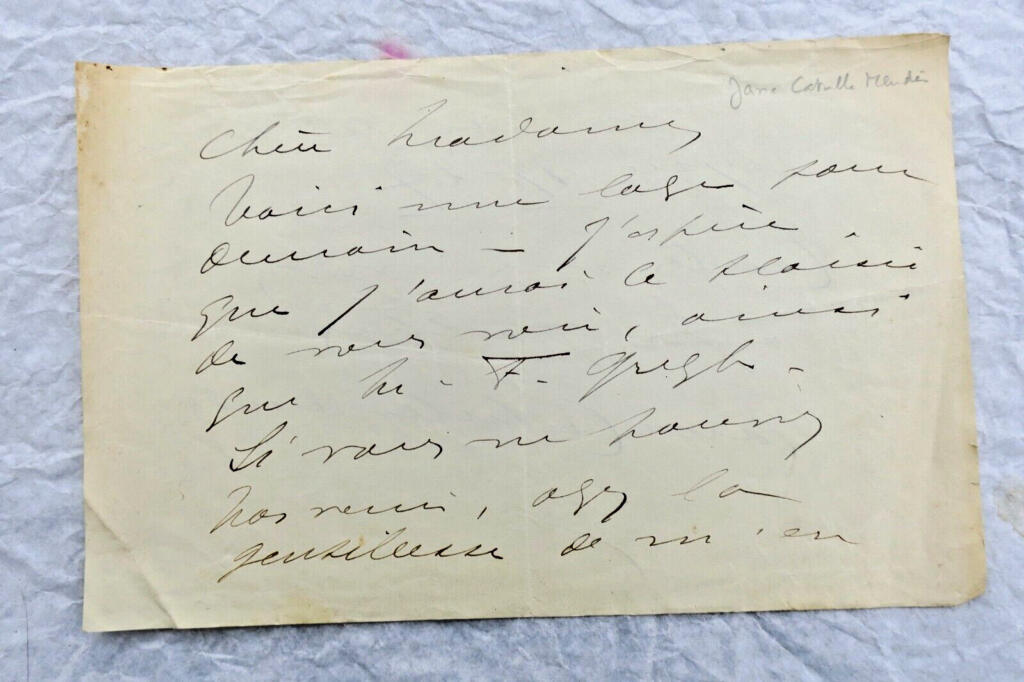 Jane Catulle Mendès
Chère Madame,
Voici une loge pour
demain — j'espère
que j'aurai le plaisir
de vous voir, ainsi
que M. F. Gregh —
Si vous ne pouviez
pas venir, ayez la
gentillesse de m'en